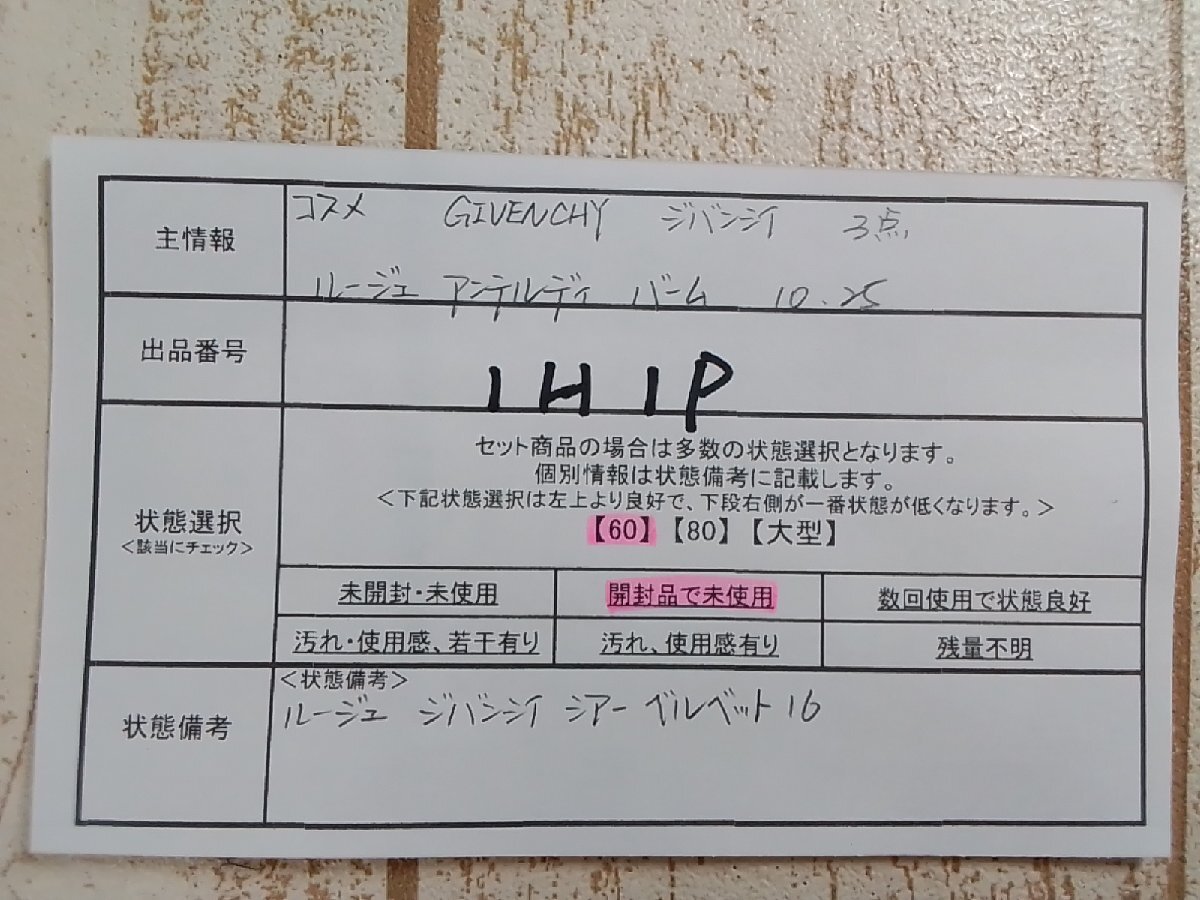 主情報
コスメ GIVENCHY ジバンシイ 3点
ルージュ アンテルディ バーム 10.25
出品番号
1H1P
状態選択
<該当にチェック>
セット商品の場合は多数の状態選択となります。
個別情報は状態備考に記載します。
<下記状態選択は左上より良好で、下段右側が一番状態が低くなります。>
【60】【80】【大型】
未開封・未使用 開封品で未使用 数回使用で状態良好
汚れ・使用感、若干有り 汚れ、使用感有り 残量不明
状態備考
<状態備考>
ルージュ ジバンシイ シアー ベルベット 16